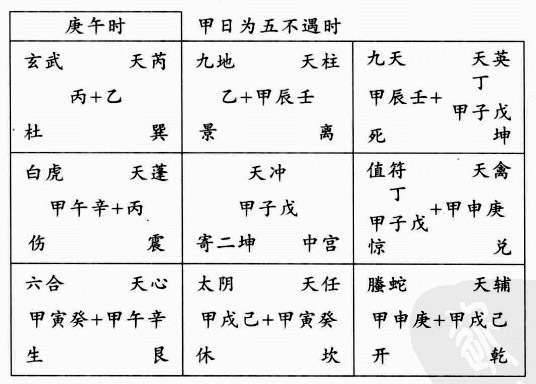 庚午时 甲日为五不遇时
玄武 天芮
丙+乙
杜 巽
九地 天柱
乙+甲辰壬
景 离
九天 天英
丁
甲辰壬+
甲子戊
死 坤
白虎 天蓬
甲午辛+丙
伤 震
天冲
甲子戊
寄二坤 中宫
值符 天禽
丁
+甲申庚
甲子戊
惊 兑
六合 天心
甲寅癸+甲午辛
生 艮
太阴 天任
甲戌己+甲寅癸
休 坎
螣蛇 天辅
甲申庚+甲戌己
开 乾